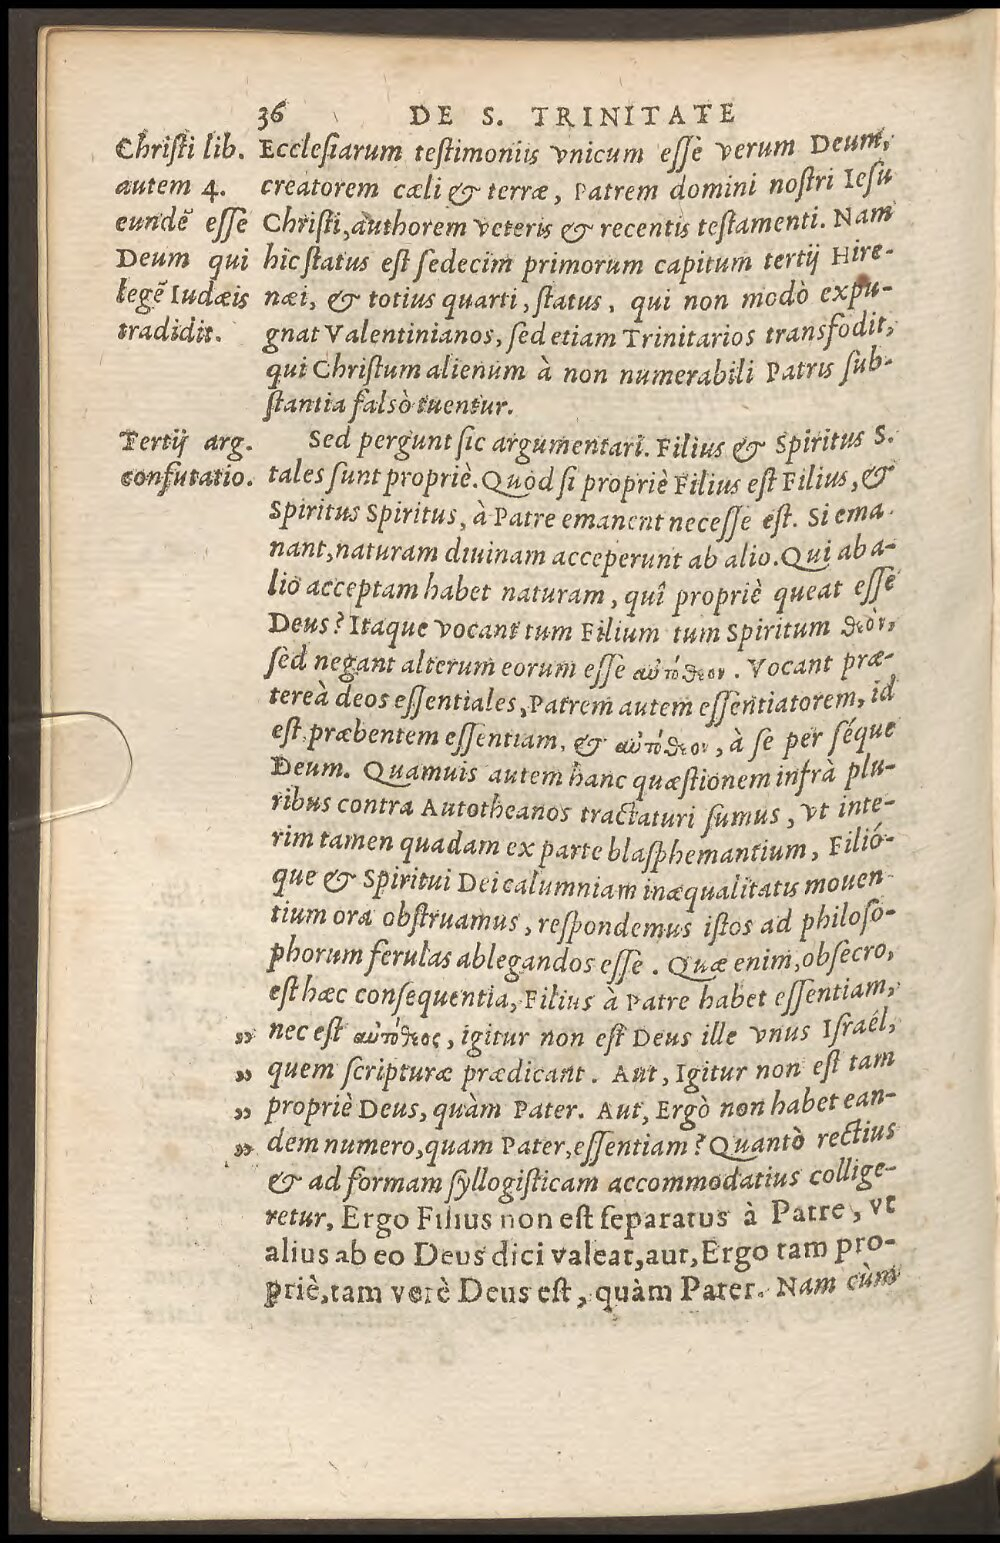 36 DE S. TRINITATE
Christi lib.
autem 4.
eundē esse
Deum qui
legē Iudæis
tradidit.
Ecclesiarum testimoniis vnicum esse verum Deum,
creatorem cæli & terræ, Patrem domini nostri Iesu
Christi, authorem veteris & recentis testamenti. Nam
hic status est sedecim primorum capitum tertij Hire-
næi, & totius quarti, status, qui non modò expu-
gnat Valentinianos, sed etiam Trinitarios transfodit,
qui Christum alienum à non numerabili Patris sub-
stantia falsò tuentur.
Tertij arg.
confutatio.
Sed pergunt sic argumentari. Filius & Spiritus S.
tales sunt propriè. Quod si propriè Filius est Filius, &
Spiritus Spiritus, à Patre emanent necesse est. Si ema
nant, naturam diuinam acceperunt ab alio. Qui ab a-
lio acceptam habet naturam, quî propriè queat esse
Deus? Itaque vocant tum Filium tum Spiritum θεὸν,
sed negant alterum eorum esse αὐτόθεον. Vocant præ-
tereà deos essentiales, Patrem autem essentiatorem, id
est præbentem essentiam, & αὐτόθεον, à se per séque
Deum. Quamuis autem hanc quæstionem infrà plu-
ribus contra Autotheanos tractaturi sumus, vt inte-
rim tamen quadam ex parte blasphemantium, Filió-
que & Spiritui Dei calumniam inæqualitatis mouen
tium ora obstruamus, respondemus istos ad philoso-
phorum ferulas ablegandos esse. Quæ enim, obsecro,
est hæc consequentia, Filius à Patre habet essentiam,
„ nec est αὐτόθεος, igitur non est Deus ille vnus Israél,
„ quem scripturæ prædicant. Aut, Igitur non est tam
„ propriè Deus, quàm Pater. Aut, Ergò non habet ean-
„ dem numero, quam Pater, essentiam? Quantò rectius
& ad formam syllogisticam accommodatius collige-
retur, Ergo Filius non est separatus à Patre, vt
alius ab eo Deus dici valeat, aut, Ergo tam pro-
priè, tam verè Deus est, quàm Pater. Nam cùm